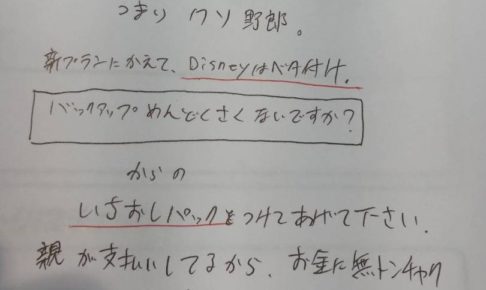 つまり クソ野郎。
新プランにかえて、Disneyはベタ付け。
バックアップめんどくさくないですか?
からの
いちおしパックをつけてあげて下さい.
親が支払いしてるから、お金に無トンチャク